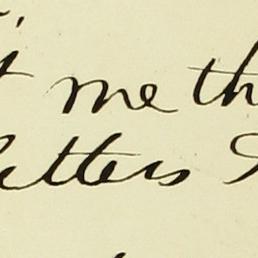 me th
letters